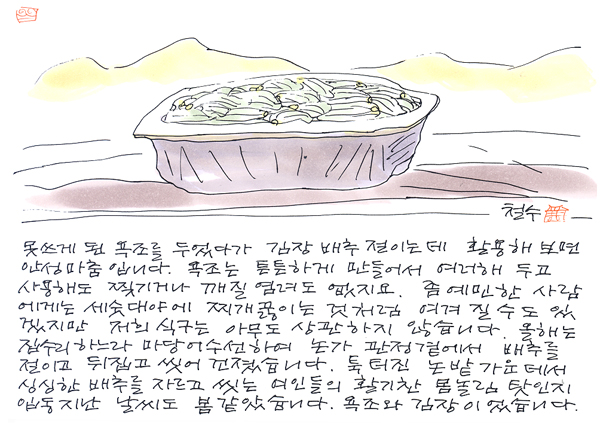 철수
못쓰게 된 욕조를 두었다가 김장 배추 절이는데 활용해 보면
안성마춤입니다. 욕조는 튼튼하게 만들어서 여러해 두고
사용해도 찢기거나 깨질 염려도 없지요. 좀 예민한 사람
에게는 세숫대야에 찌개끓이는 것처럼 여겨 질 수도 있
겠지만 저희 식구는 아무도 상관하지 않습니다. 올해는
집수리 하느라 마당어수선하여 논가 관정곁에서 배추를
절이고 뒤집고 씻어 건졌습니다. 툭 터진 논밭 가운데서
싱싱한 배추를 자르고 씻는 여인들의 활기찬 몸놀림 탓인지
입동지난 날씨도 봄같았습니다. 욕조와 김장이었습니다.